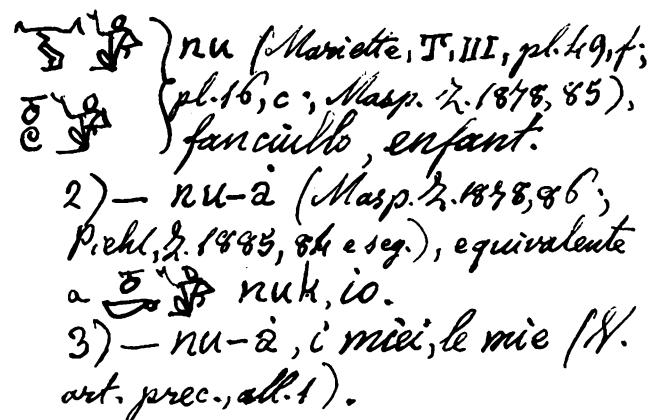 nu (Mariette, T, III, pl. 49, f;
pl. 16, c; Masp. Z. 1878, 85),
fanciullo, enfant.
2) — nu-ȧ (Masp. Z. 1878, 86;
Piehl, Z. 1885, 84 e seg.), equivalente
a nuk, io.
3) — nu-ȧ, i miei, le mie (V.
art. prec., all. 1).